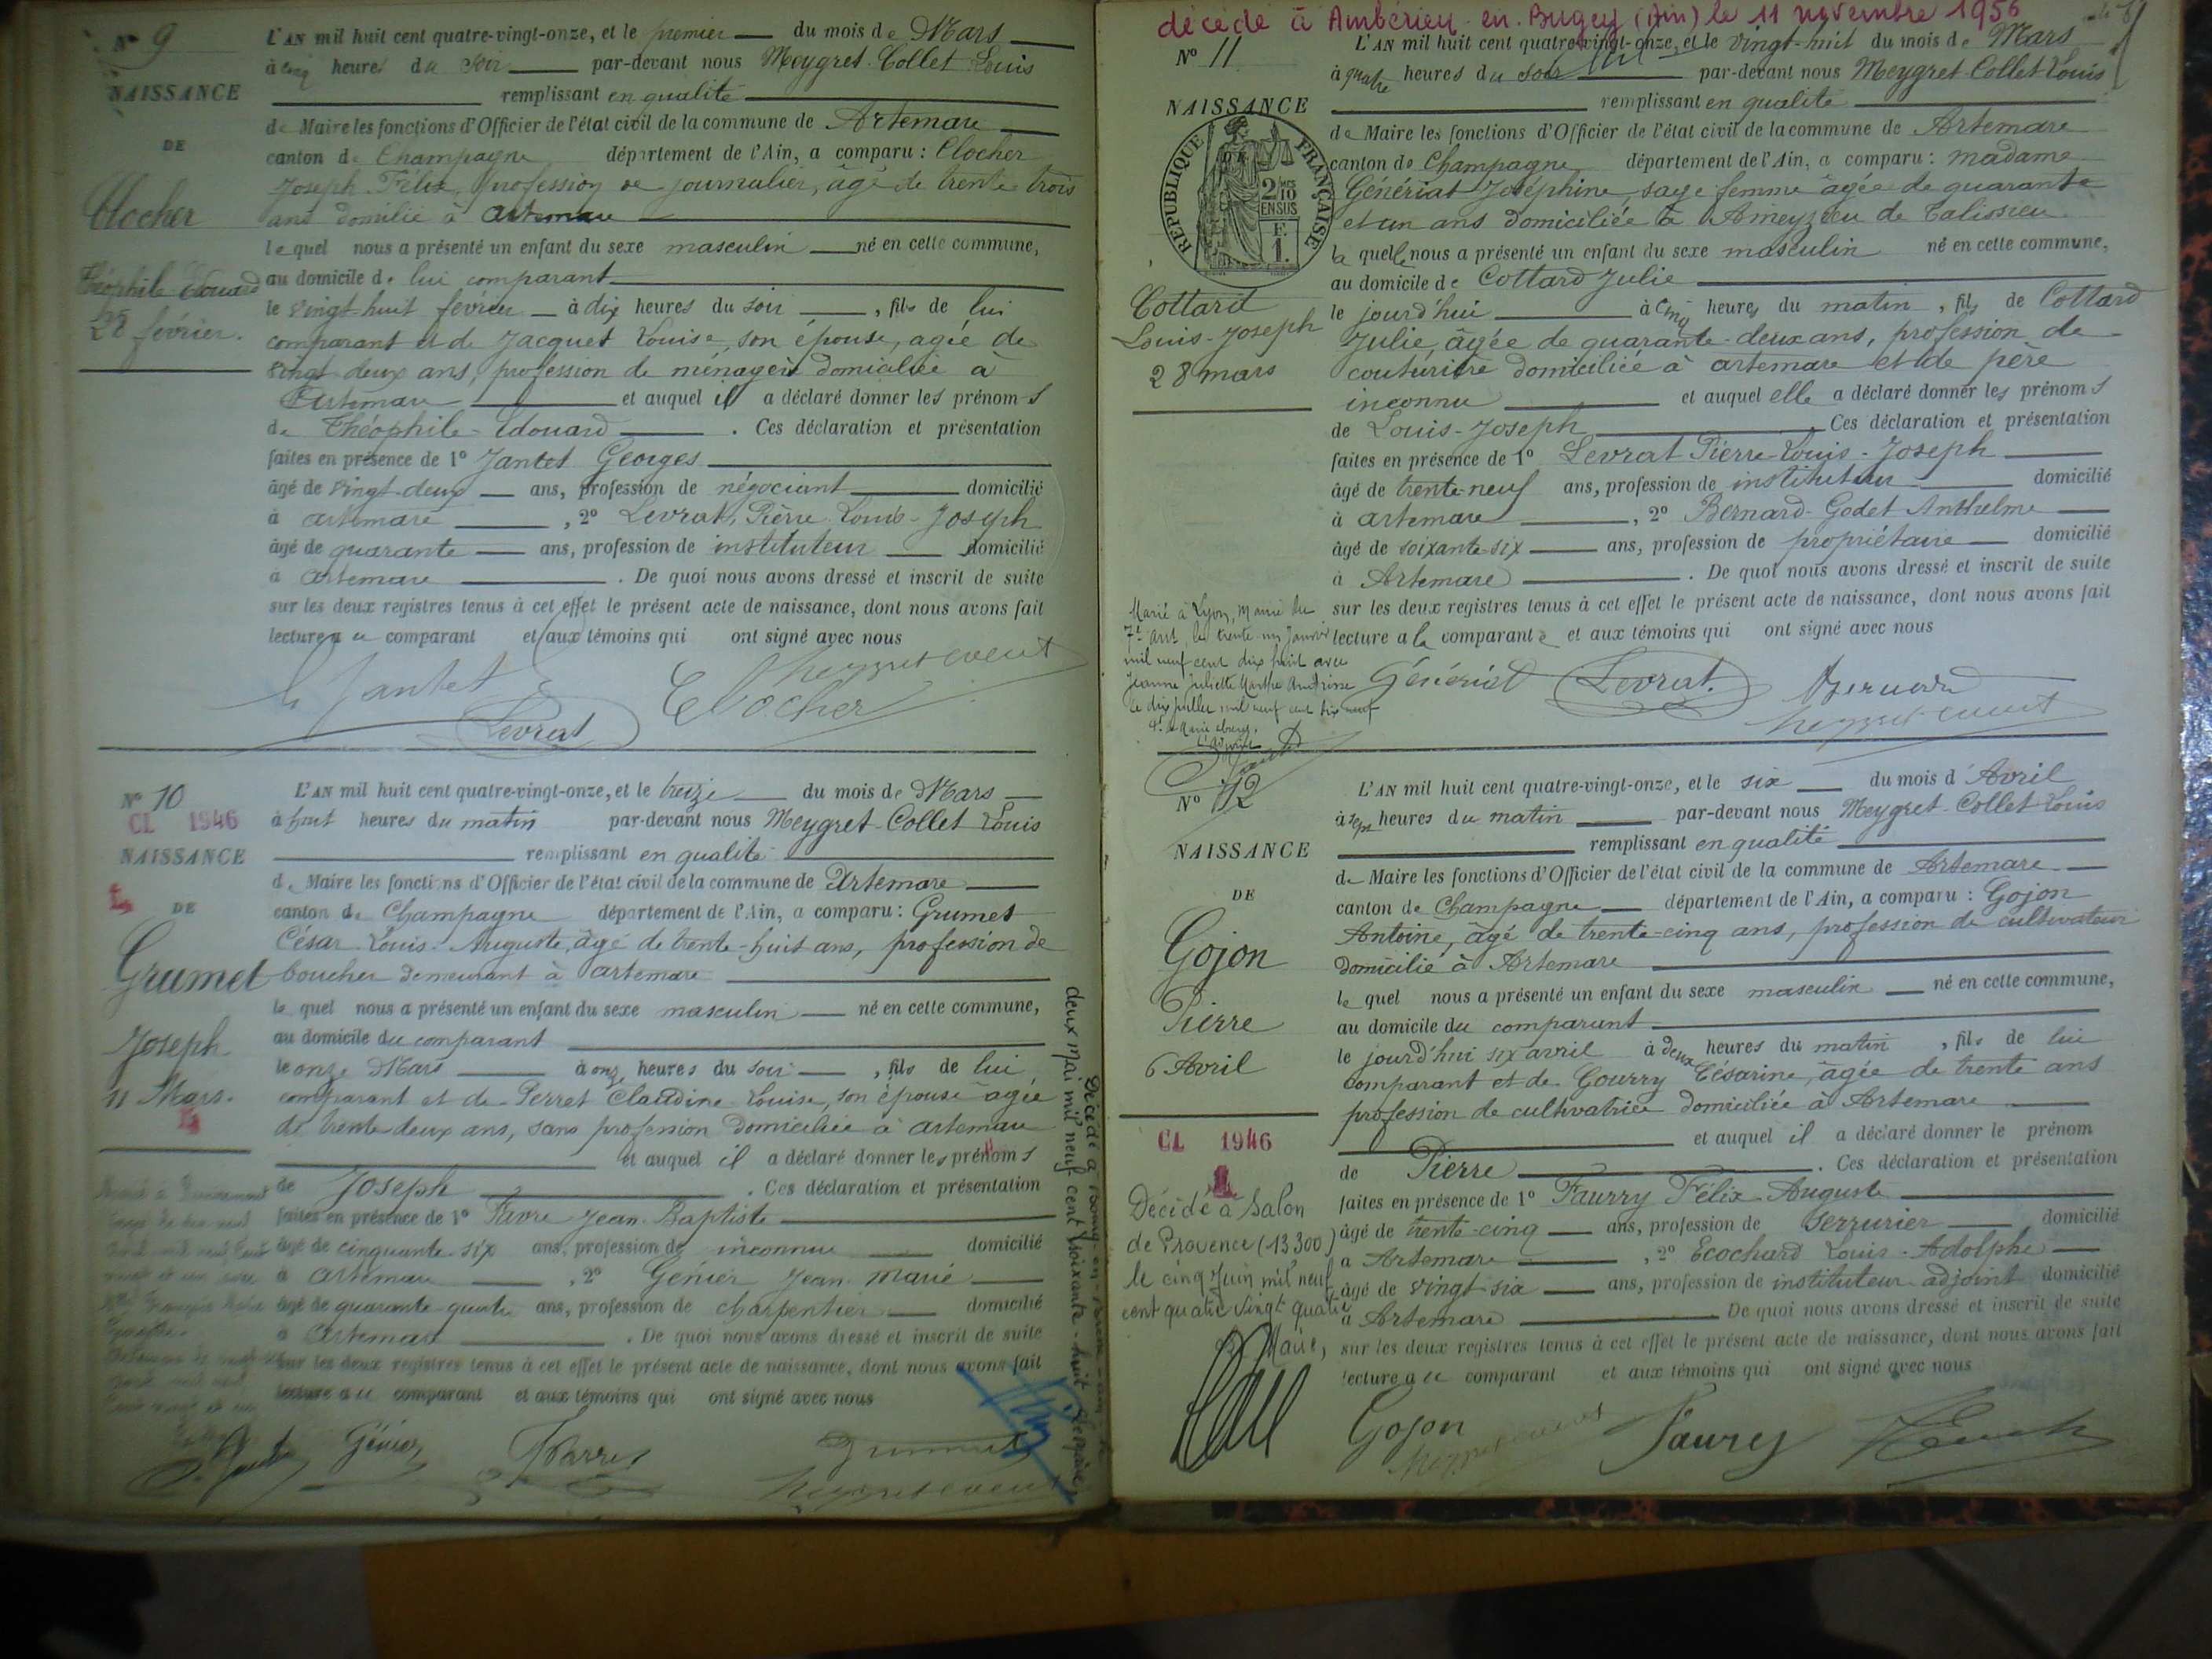 N° 9
NAISSANCE
DE
Clocher
Théophile Edouard
28 février.
L'AN mil huit cent quatre-vingt-onze, et le premier du mois de Mars
à cinq heures du soir par-devant nous Meygret-Collet Louis
remplissant en qualité
de Maire les fonctions d'Officier de l'état civil de la commune de Artemare
canton de Champagne département de l'Ain, a comparu : Clocher
Joseph Félix, profession de journalier, âgé de trente trois
ans domilié à Artemare
lequel nous a présenté un enfant du sexe masculin né en cette commune,
au domicile de lui comparant
le vingt-huit février à dix heures du soir , fils de lui
comparant et de Jacquet Louise, son épouse, agée de
vingt-deux ans, profession de ménagère domiciliée à
Artemare et auquel il a déclaré donner les prénoms
de Théophile-Edouard . Ces déclaration et présentation
faites en présence de 1° Jantet Georges
âgé de vingt-deux ans, profession de négociant domicilié
à artemare , 2° Levrat, Pierre Louis-Joseph
âgé de quarante ans, profession de instituteur domicilié
à Artemare . De quoi nous avons dressé et inscrit de suite
sur les deux registres tenus à cet effet le présent acte de naissance, dont nous avons fait
lecture au comparant et aux témoins qui ont signé avec nous
G Jantet Clocher
Levrat
N° 10
CL 1946
NAISSANCE
DE
Grumet
Joseph
11 Mars.
L'AN mil huit cent quatre-vingt-onze, et le treize du mois de Mars
à huit heures du matin par-devant nous Meygret-Collet Louis
remplissant en qualité
de Maire les fonctions d'Officier de l'état civil de la commune de Artemare
canton de Champagne département de l'Ain, a comparu : Grumet
César-Louis-Auguste, âgé de trente-huit ans, profession de
boucher demeurant à artemare
le quel nous a présenté un enfant du sexe masculin né en cette commune,
au domicile du comparant
le onze Mars à onze heures du soir , fils de lui
comparant et de Perret Claudine Louise, son épouse âgée
de trente deux ans, sans profession domiciliée à artemare
et auquel il a déclaré donner les prénoms
de Joseph . Ces déclaration et présentation
faites en présence de 1° Favre Jean-Baptiste
âgé de cinquante-six ans, profession de inconnue domicilié
à artemare , 2° Génier Jean-Marie
âgé de quarante-quatre ans, profession de charpentier domicilié
à Artemare . De quoi nous avons dressé et inscrit de suite
sur les deux registres tenus à cet effet le présent acte de naissance, dont nous avons fait
lecture au comparant et aux témoins qui ont signé avec nous
Génier Grumet
Décédé à Bourg-en-Bresse
deux Mai mil neuf cent soixante-huit
décédé à Ambérieu-en-Bugey (Ain) le 11 novembre 1956
N° 11
NAISSANCE
DE
RÉPUBLIQUE FRANÇAISE
2/10 EN SUS
F. 1.
Cottard
Louis-Joseph
28 mars
L'AN mil huit cent quatre-vingt-onze, et le vingt-huit du mois de Mars
à quatre heures du soir par-devant nous Meygret-Collet Louis
remplissant en qualité
de Maire les fonctions d'Officier de l'état civil de la commune de Artemare
canton de Champagne département de l'Ain, a comparu : madame
Génériat Joséphine, sage femme âgée de quarante
et un ans domiciliée à Ameyzieu de Talissieu
la quelle nous a présenté un enfant du sexe masculin né en cette commune,
au domicile de Cottard Julie
le jourd'hui à cinq heures du matin , fils de Cottard
Julie, âgée de quarante-deux ans, profession de
couturière domiciliée à artemare et de père
inconnu et auquel elle a déclaré donner les prénoms
de Louis-Joseph Ces déclaration et présentation
faites en présence de 1° Levrat Pierre-Louis-Joseph
âgé de trente-neuf ans, profession de instituteur domicilié
à artemare , 2° Bernard-Godet Anthelme
âgé de soixante-six ans, profession de propriétaire domicilié
à Artemare . De quoi nous avons dressé et inscrit de suite
sur les deux registres tenus à cet effet le présent acte de naissance, dont nous avons fait
lecture a la comparante et aux témoins qui ont signé avec nous
Marié à Lyon, Mairie du
7e arrt, le trente un Janvier
mil neuf cent dix huit avec
Jeanne Juliette Marthe
Le dix juillet mil neuf cent dix neuf
Génériat Levrat Bernard
N° 12
NAISSANCE
DE
Gojon
Pierre
6 Avril
CL 1946
Décédé à Salon
de Provence (13300)
le cinq Juin mil neuf
cent quatre vingt quatre
Maire,
L'AN mil huit cent quatre-vingt-onze, et le six du mois d'Avril
à sept heures du matin par-devant nous Meygret-Collet Louis
remplissant en qualité
de Maire les fonctions d'Officier de l'état civil de la commune de Artemare
canton de Champagne département de l'Ain, a comparu : Gojon
Antoine, âgé de trente-cinq ans, profession de cultivateur
domicilié à Artemare
le quel nous a présenté un enfant du sexe masculin né en cette commune,
au domicile du comparant
le jourd'hui six avril à deux heures du matin , fils de lui
comparant et de Gourry Césarine, âgée de trente ans
profession de cultivatrice domiciliée à Artemare
et auquel il a déclaré donner le prénom
de Pierre . Ces déclaration et présentation
faites en présence de 1° Faurry Félix-Auguste
âgé de trente-cinq ans, profession de serrurier domicilié
a Artemare , 2° Ecochard Louis-Adolphe
âgé de vingt six ans, profession de instituteur-adjoint domicilié
a Artemare De quoi nous avons dressé et inscrit de suite
sur les deux registres tenus à cet effet le présent acte de naissance, dont nous avons fait
lecture a le comparant et aux témoins qui ont signé avec nous
Gojon Faurry